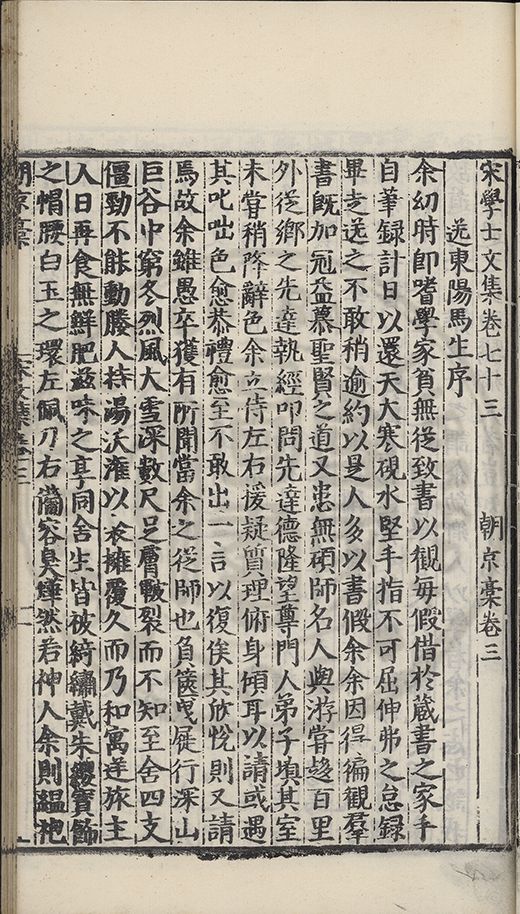 宋學士文集卷七十三　朝京藁卷三
送東陽馬生序
余幼時即嗜學家貧無從致書以觀每假借於藏書之家手
自筆録計日以還天大寒硯水堅手指不可屈伸弗之怠録
畢走送之不敢稍逾約以是人多以書假余余因得徧觀羣
書既加冠益慕聖賢之道又患無碩師名人與游嘗趍百里
外從鄉之先達執經叩問先達德隆望尊門人弟子填其室
未嘗稍降辭色余立侍左右援疑質理俯身傾耳以請或遇
其叱咄色愈恭禮愈至不敢出一言以復俟其欣悅則又請
焉故余雖愚卒獲有所聞當余之從師也負篋曳屣行深山
巨谷中窮冬烈風大雪深數尺足膚皸裂而不知至舍四支
僵勁不能動媵人持湯沃灌以衾擁覆久而乃和寓逆旅主
人日再食無鮮肥滋味之享同舍生皆被綺繡戴朱纓寶飾
之帽腰白玉之環左佩刀右備容臭燁然若神人余則縕袍